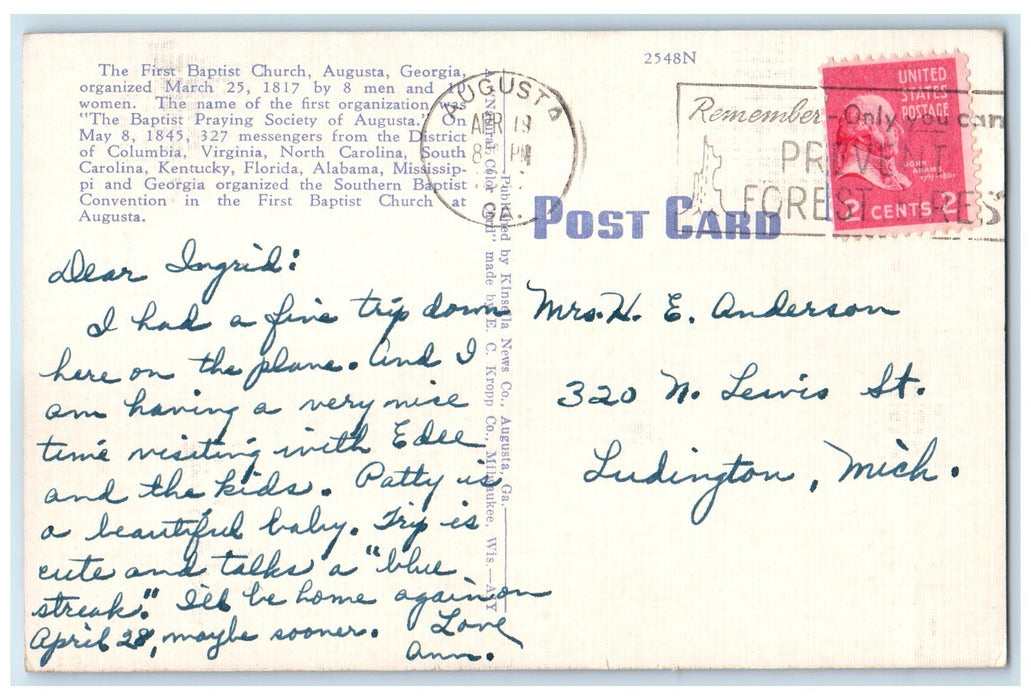 The First Baptist Church, Augusta, Georgia,
organized March 25, 1817 by 8 men and 10
women. The name of the first organization was
"The Baptist Praying Society of Augusta." On
May 8, 1845, 327 messengers from the District
of Columbia, Virginia, North Carolina, South
Carolina, Kentucky, Florida, Alabama, Mississip-
pi and Georgia organized the Southern Baptist
Convention in the First Baptist Church at
Augusta.
2548N
AUGUSTA
APR 19
PM
GA.
Remember-Only you can
PREVENT
FOREST
UNITED
STATES
POSTAGE
JOHN
ADAMS
1797-1801
2 CENTS 2
POST CARD
Published by Kinsella News Co., Augusta, Ga.
Natural Color Card" made by E. C. Kropp Co., Milwaukee, Wis.
Dear Ingrid:
I had a fine trip down
here on the plane. And I
am having a very nice
time visiting with Edee
and the kids. Patty is
a beautiful baby. Trip is
cute and talks a "blue
streak." I'll be home again on
April 28, maybe sooner.
Love
Ann.
Mrs. H. E. Anderson
320 N. Lewis St.
Ludington, Mich.